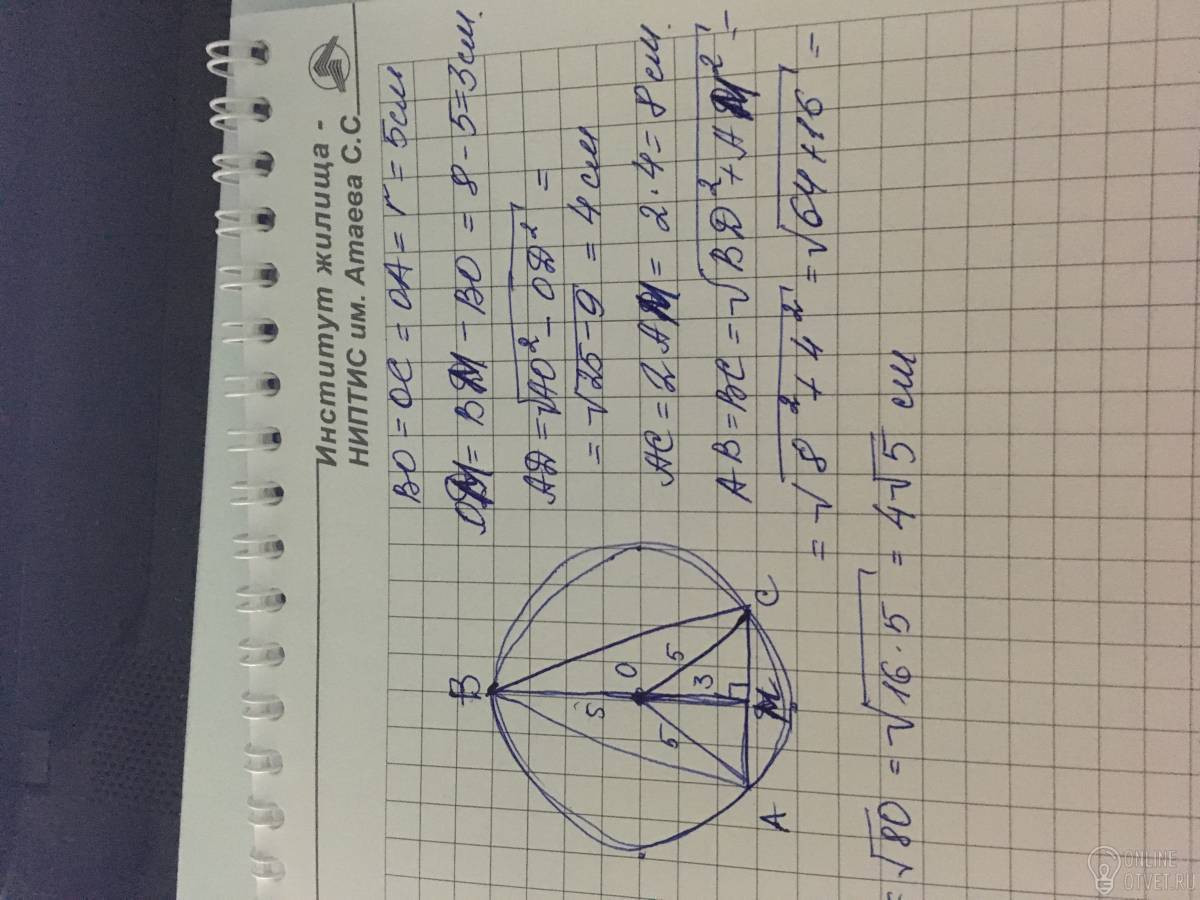 Институт жилища -
НИПТИС им. Атаева С.С.
BO = OC = OA = r = 5см
OM = BM - BO = 8 - 5 = 3см.
AD = √AO² - OD² =
= √25-9 = 4 см
AC = 2AM = 2·4 = 8 см.
AB = BC = √BD² + AM² =
= √8² + 4² = √64+16 =
= √80 = √16·5 = 4√5 см
B
5
O
5
5
3
A
M
C
ONLINE
OTVET.RU